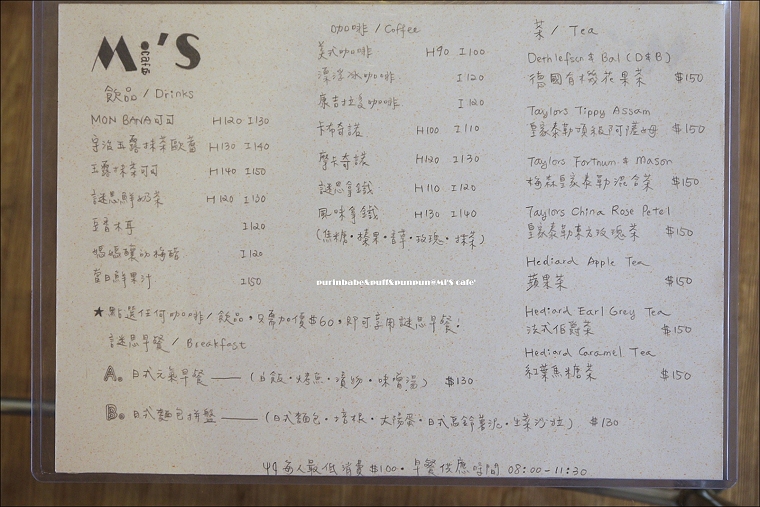 Mi's
café
飲品 / Drinks
MON BANA可可 H120 I130
宇治玉露抹茶歐蕾 H130 I140
玉露抹茶可可 H140 I150
謎思鮮奶茶 H120 I130
I120
媽媽釀的梅醋 I120
當日鮮果汁 I150
咖啡 / Coffee
美式咖啡 H90 I100
漂浮冰咖啡 I120
康吉拉多咖啡 I120
卡布奇諾 H100 I110
摩卡奇諾 H120 I130
謎思拿鐵 H110 I120
風味拿鐵 H130 I140
(焦糖・榛果・香草・玫瑰・抹茶)
茶 / Tea
Dethlefsen & Bal (D&B)
德國有機花果茶 $150
Taylors Tippy Assam
皇家泰勒頂級阿薩姆 $150
Taylors Fortnum & Mason
梅森皇家泰勒混合茶 $150
Taylors China Rose Petel
皇家泰勒東方玫瑰茶 $150
Hediard Apple Tea
蘋果茶 $150
Hediard Earl Grey Tea
法式伯爵茶 $150
Hediard Caramel Tea
紅葉焦糖茶 $150
purinbabe&puff&punpun@MI'S cafe'
★點選任何咖啡/飲品,只需加價$60,即可享用謎思早餐!
謎思早餐 / Breakfast
A。日式元氣早餐 —— (白飯・烤魚・漬物・味噌湯) $130
B。日式麵包拼盤 —— (日式麵包・培根・太陽蛋・日式馬鈴薯泥・生菜沙拉) $130
每人最低消費$100・早餐供應時間 08:00-11:30